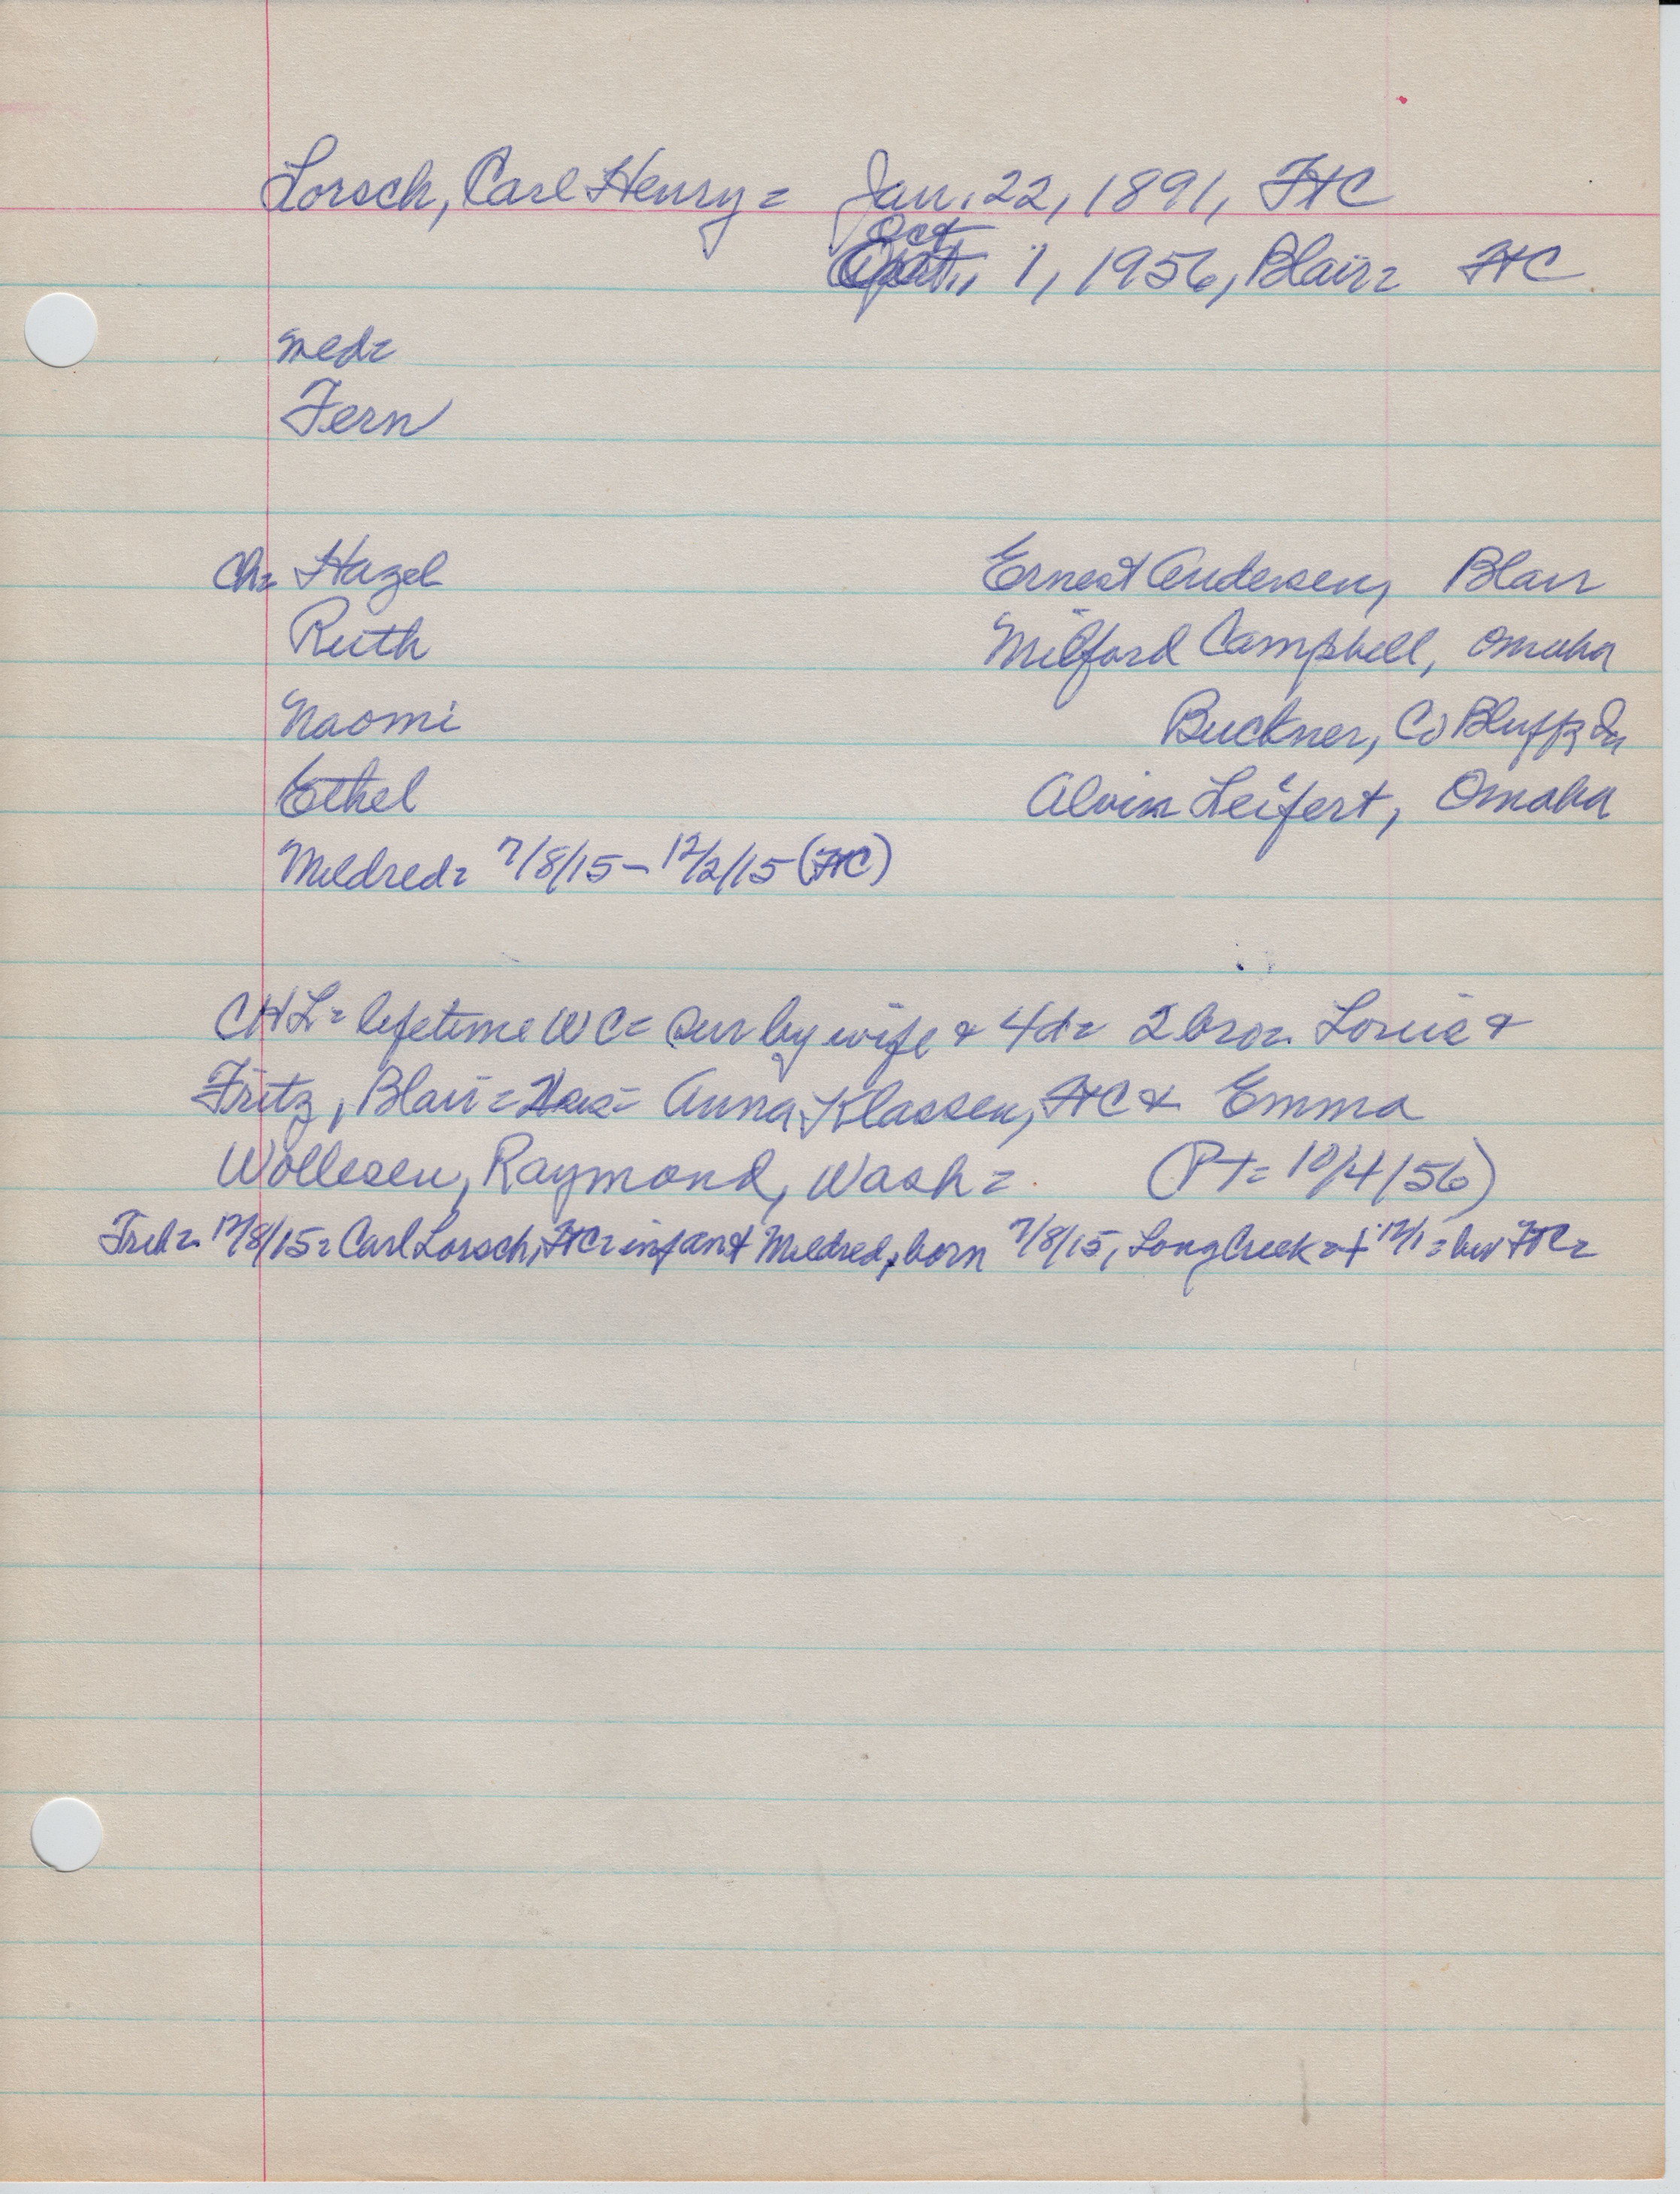 Lorsch, Carl Henry = Jan. 22, 1891, FtC
Oct
1, 1956, Blair = FtC
med =
Fern
Ch = Hazel Ernest Andersen, Blair
Ruth Milford Campbell, Omaha
Naomi Buckner, Co Bluffs Ia
Ethel Alvin Leifert, Omaha
Mildred = 7/8/15 – 12/2/15 (FtC)
CHL = lifetime WC = sur by wife & 4d = 2 bro = Louie &
Fritz, Blair = = Anna Klassen, FtC & Emma
Wollesen, Raymond, Wash = (PT = 10/4/56)
Trib = 12/8/15 = Carl Lorsch, FtC = infant Mildred, born 7/8/15, Long Creek = + 12/1 = bur FtC =